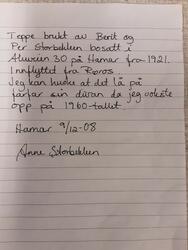 Teppe brukt av Berit og
Per Storbekken bosatt i
30 på Hamar fra 1921.
Innflyttet fra Røros.
Jeg kan huske at det lå på
farfar sin divan da jeg vokste
opp på 1960-tallet.
Hamar 9/12-08
Anne Storbekken